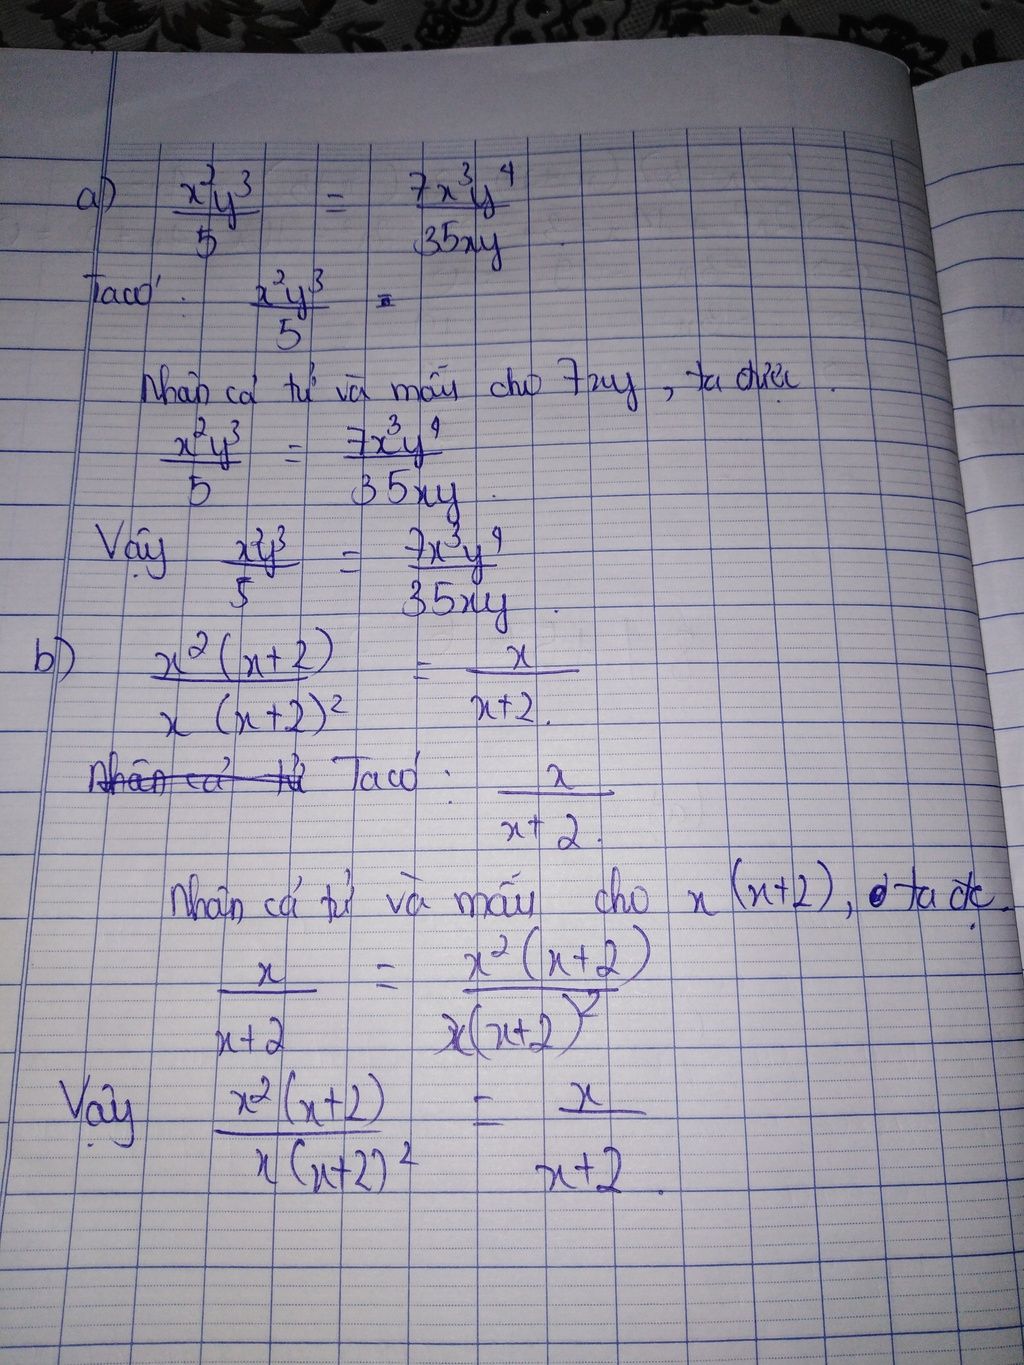 a) x²y³/5 = 7x³y⁴/35xy
Ta có: x²y³/5 =
Nhân cả tử và mẫu cho 7xy, ta được.
x²y³/5 = 7x³y⁴/35xy.
Vậy x²y³/5 = 7x³y⁴/35xy.
b) x²(x+2)/x(x+2)² = x/x+2.
Nhân cả tử Ta có: x/x+2.
Nhân cả tử và mẫu cho x(x+2), ta đc.
x/x+2 = x²(x+2)/x(x+2)²
Vậy x²(x+2)/x(x+2)² = x/x+2.